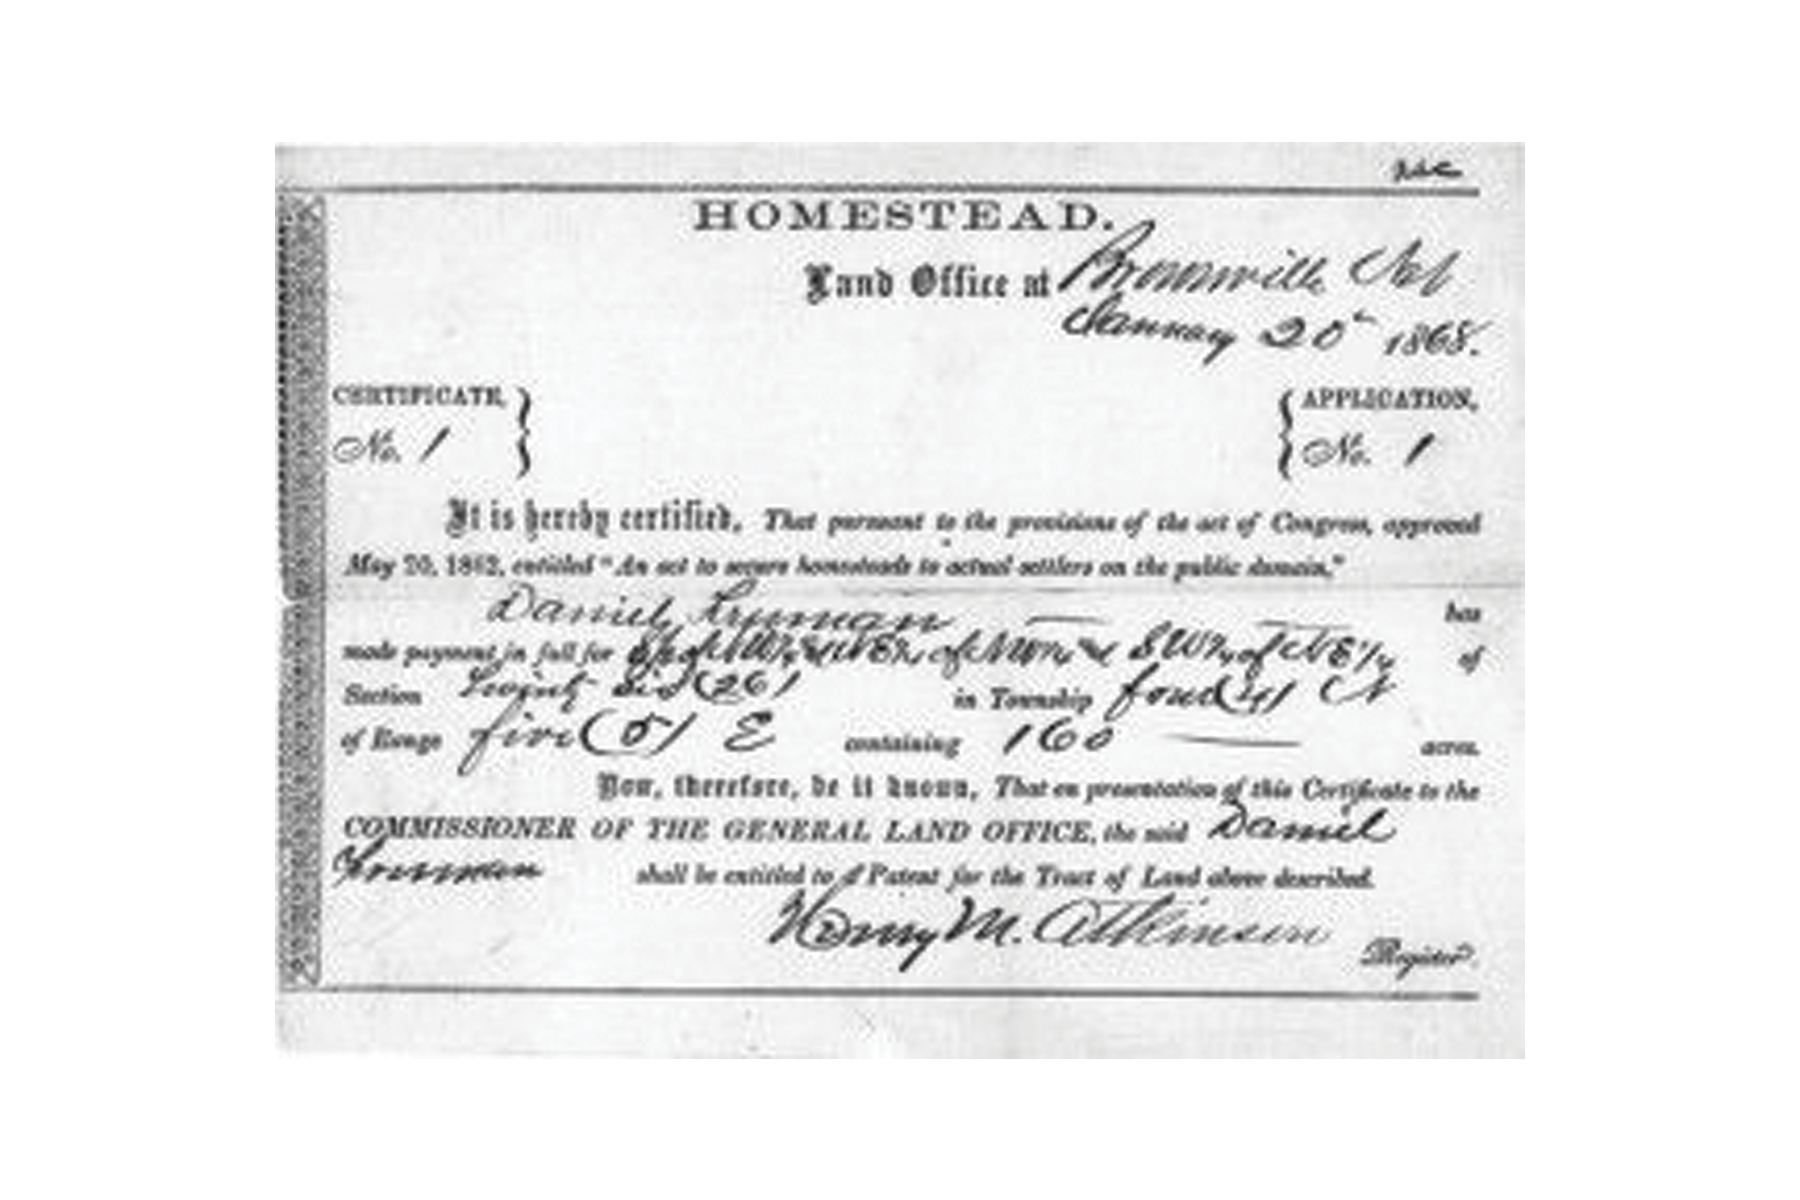 HOMESTEAD.
Land Office at Brownville Neb
January 20th 1868.
CERTIFICATE, No. 1
APPLICATION, No. 1
It is hereby certified, That pursuant to the provisions of the act of Congress, approved
May 20, 1862, entitled "An act to secure homesteads to actual settlers on the public domain,"
Daniel Freeman has
made payment in full for of NW¼ & NE¼ of NW¼ & SW¼ of NE¼ of
Section Twenty Six (26) in Township four (4) N
of Range five (5) E containing 160 acres.
Now, therefore, be it known, That on presentation of this Certificate to the
COMMISSIONER OF THE GENERAL LAND OFFICE, the said Daniel
Freeman shall be entitled to a Patent for the Tract of Land above described.
Henry M. Atkinson Register.